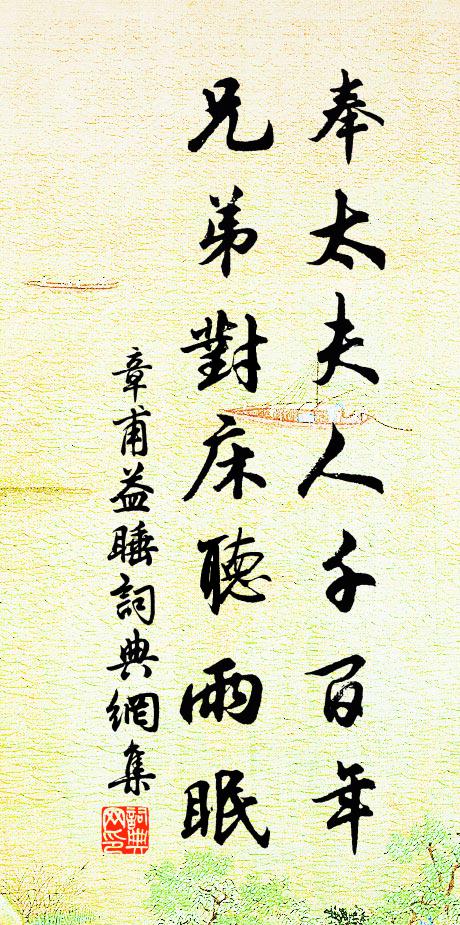 奉太夫人千百年
兄弟對床聽雨眠
章甫益睡詞典網集
詞典網印